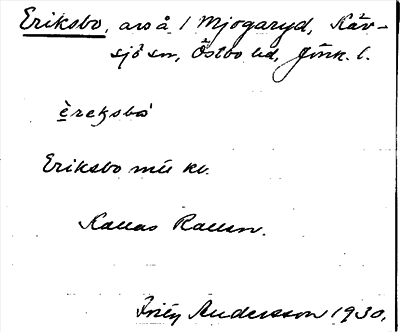 Eriksbo, avs å 1 Mjogaryd, Käv-
sjö sn, Östbo hd, Jönk. l.
èreksbó
Eriksbo mü kv.
Kallas Rallen.
Andersson 1930.